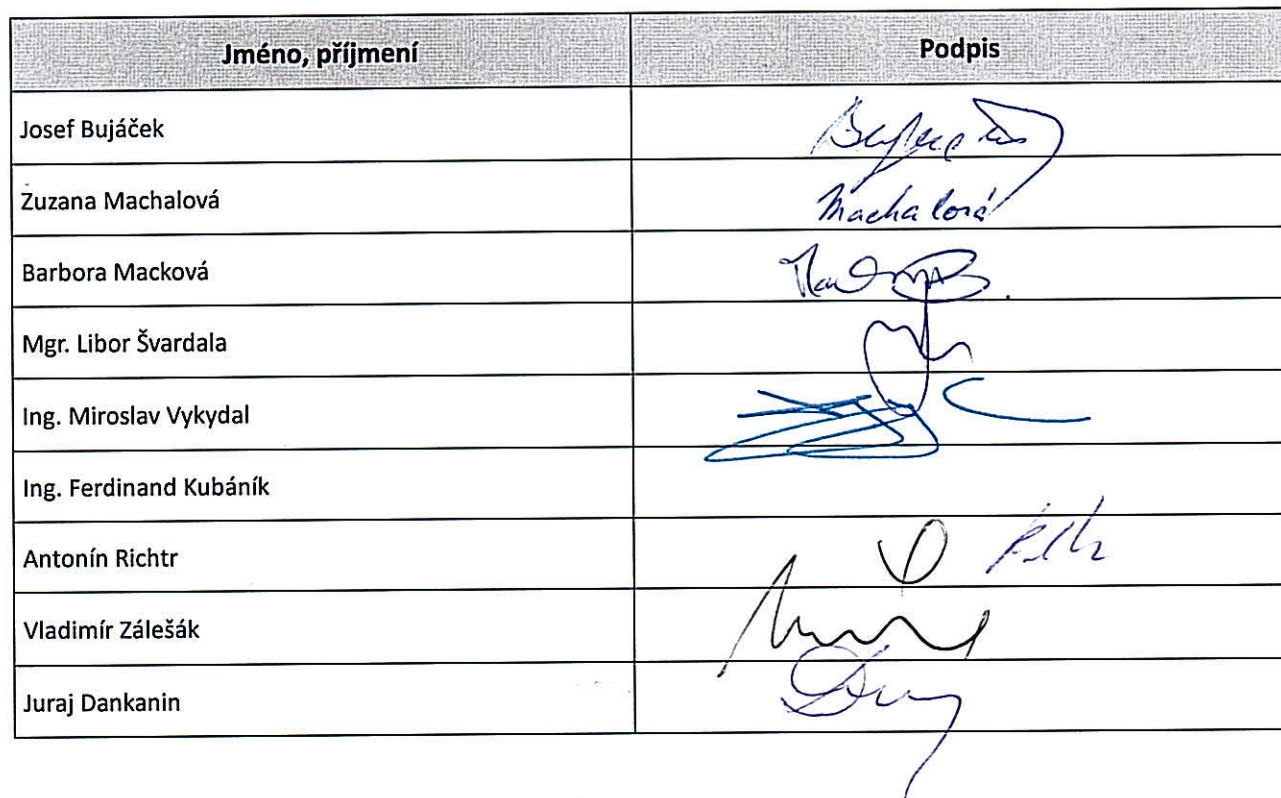 Jméno, příjmení Podpis
Josef Bujáček
Zuzana Machalová Machalová
Barbora Macková
Mgr. Libor Švardala
Ing. Miroslav Vykydal
Ing. Ferdinand Kubáník
Antonín Richtr
Vladimír Zálešák
Juraj Dankanin